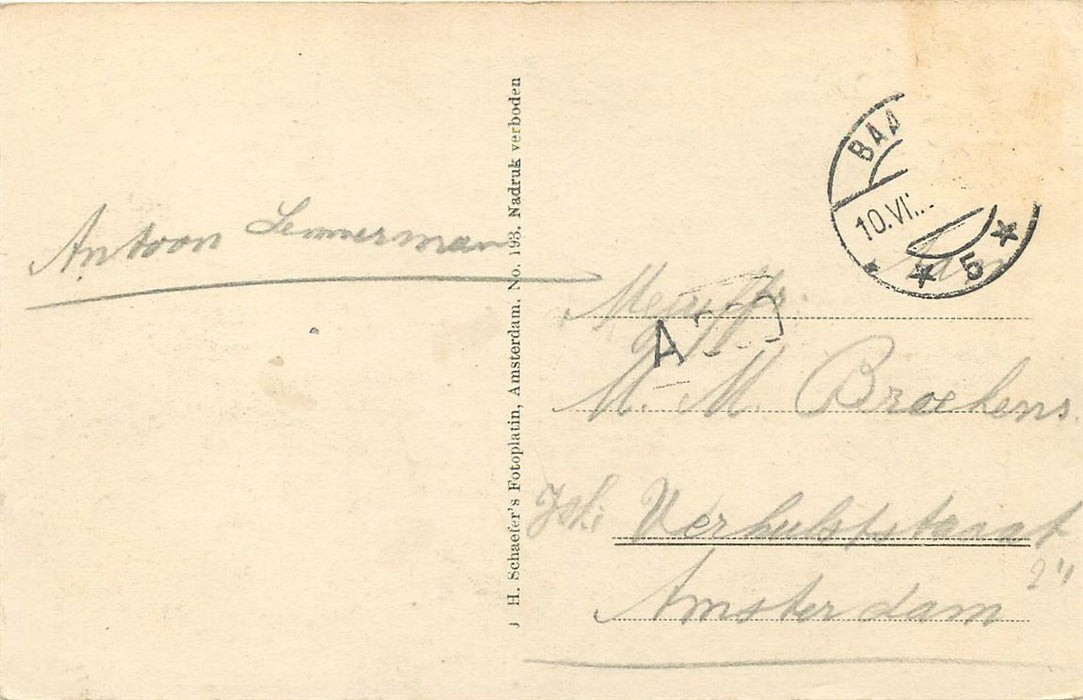 Antoon Lemmerman
H. Schaefer's Fotoplatin, Amsterdam. No. 193, Nadruk verboden
BAA
10.VII
5
Aan
Mejuffr.
A
M. M. Broekens
Joh: Verhulststraat
Amsterdam